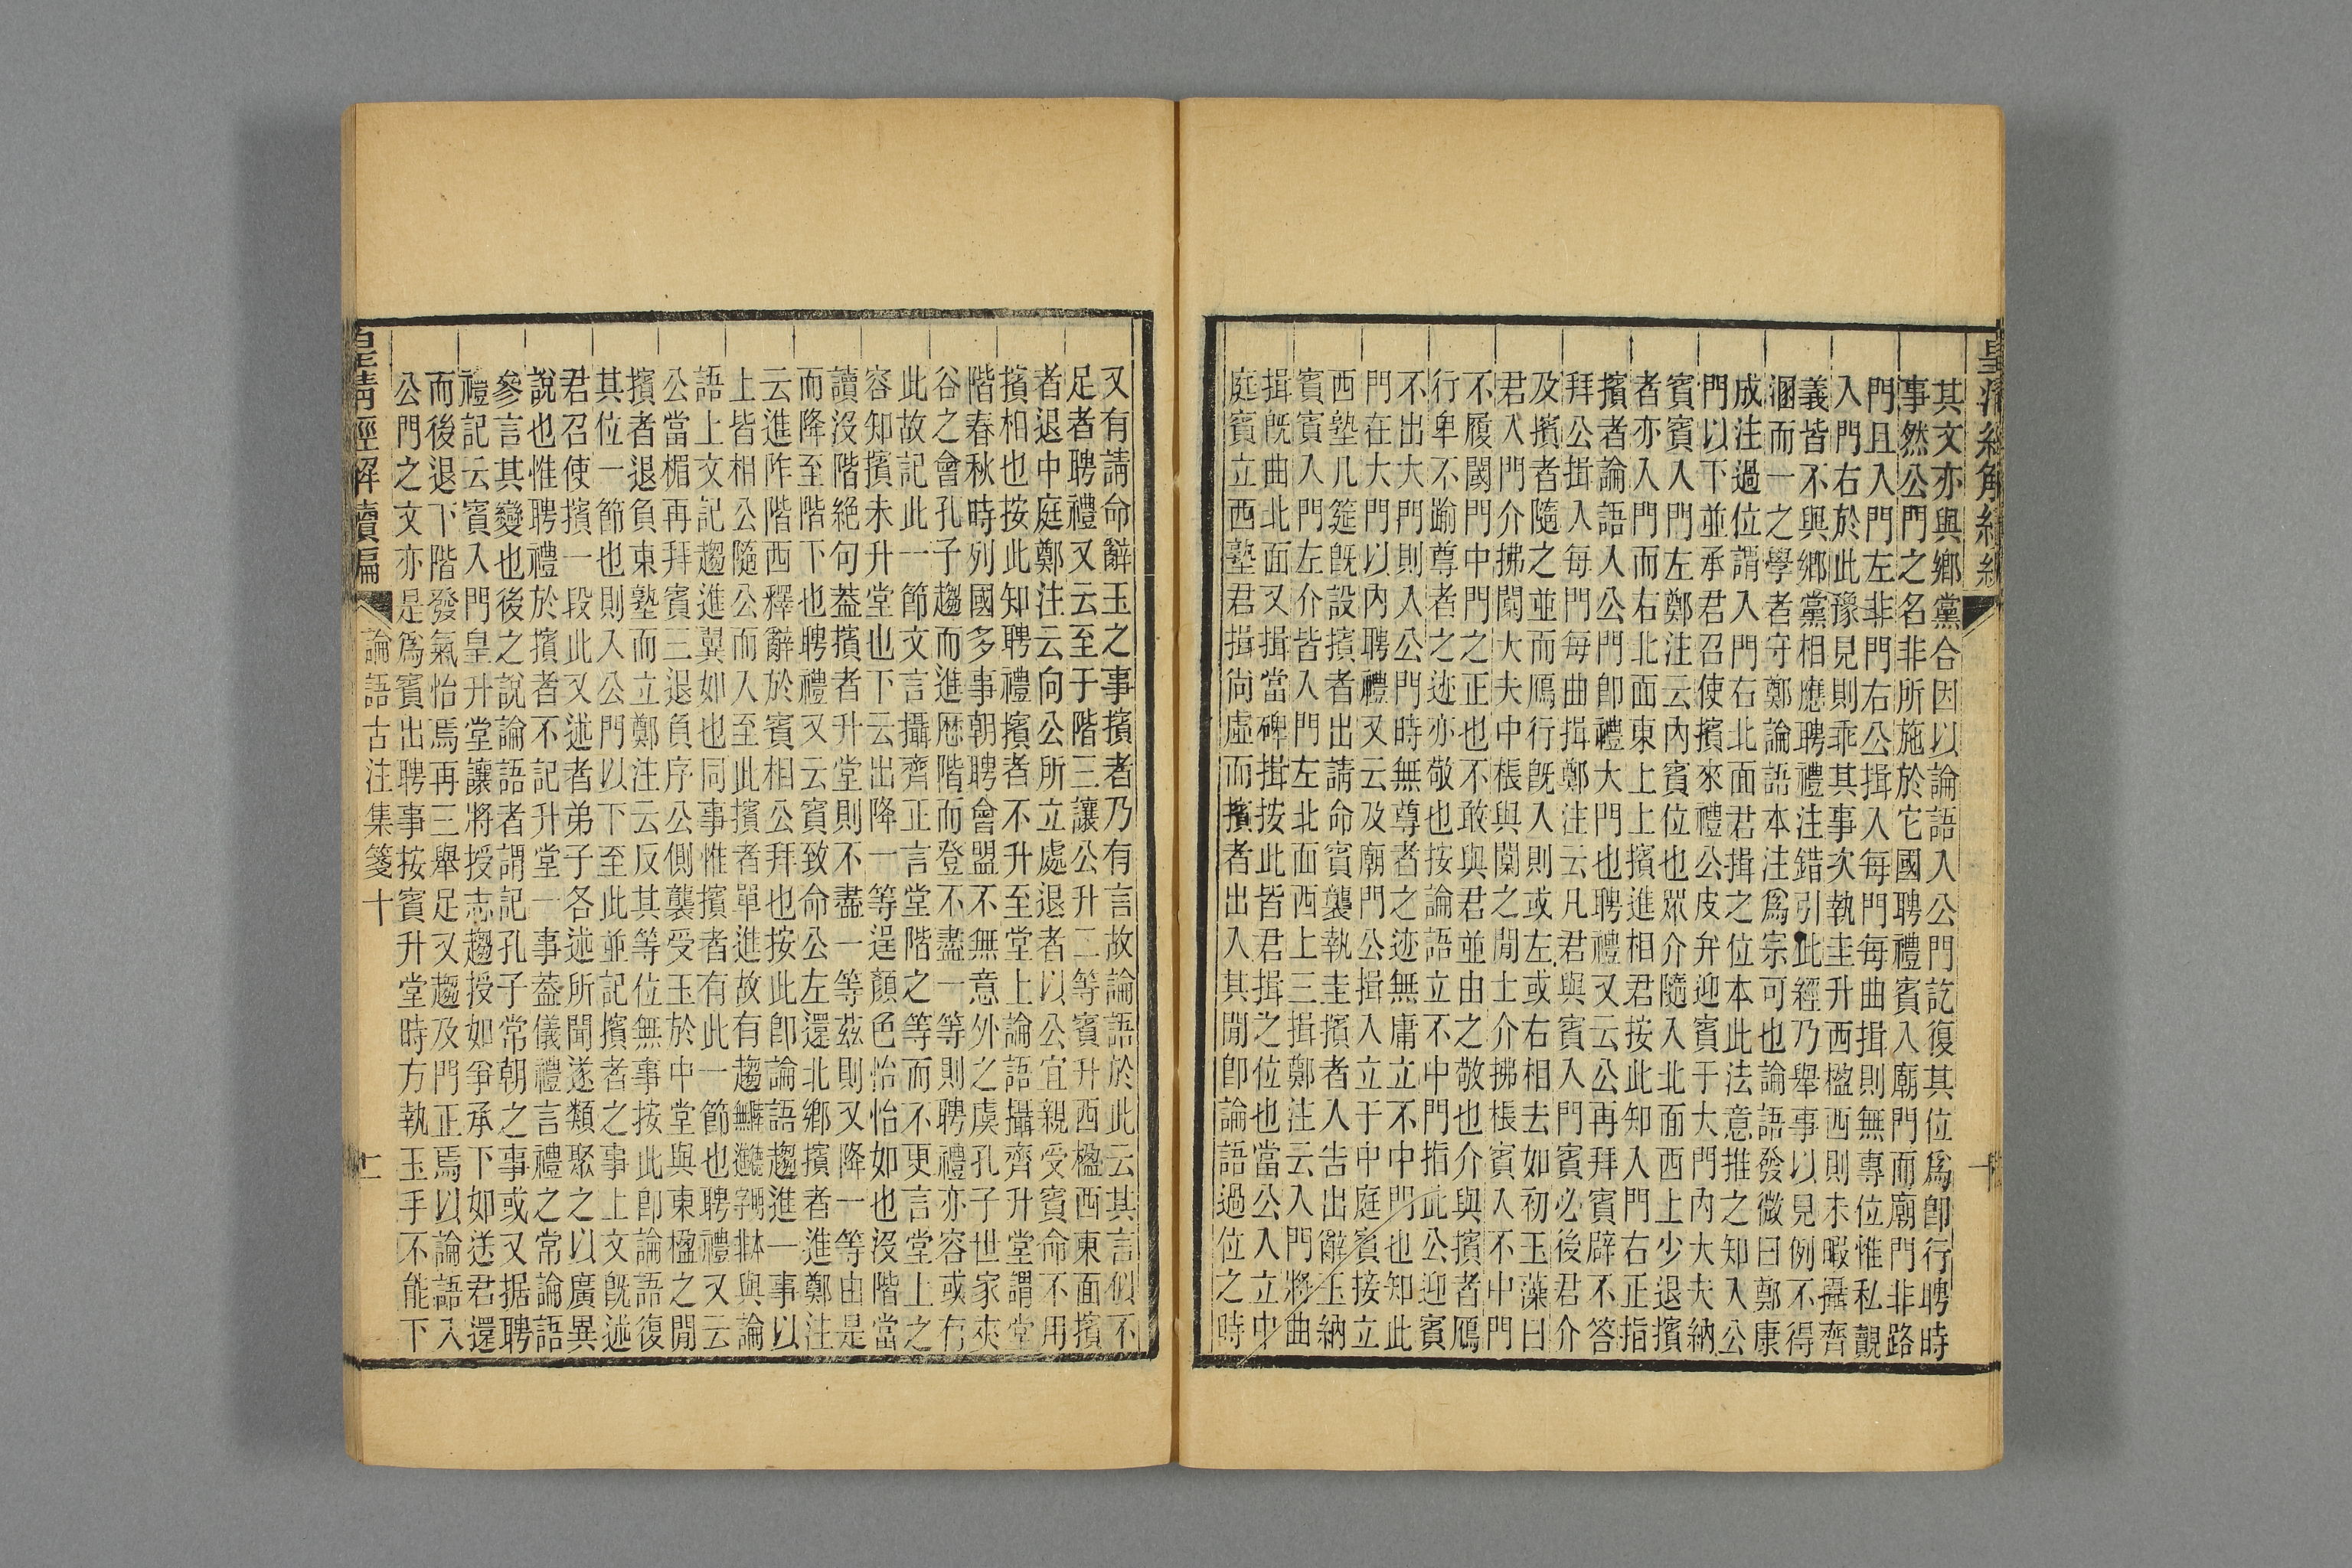 皇清經解續編
其文亦與鄉黨合因以論語入公門訖復其位爲卽行聘時
事然公門之名非所施於它國聘禮賓入廟門而廟門非路
門且入門左非門右公揖入每門每曲揖則無專位惟私覿
入門右於此豫見則乖其事次執圭升西楹西則未暇攝齊
義皆不與鄉黨相應聘禮注錯引此經乃舉事以見例不得
溷而一之學者守鄭論語本注爲宗可也論語發微曰鄭康
成注過位謂入門右北面君揖之位本此法意推之知入公
門以下並承君召使擯來禮公皮弁迎賓于大門內大夫納
賓賓入門左鄭注云內賓位也眾介隨入北面西上少退擯
者亦入門而右北面東上上擯進相君按此知入門右正指
擯者論語入公門卽禮大門也聘禮又云公再拜賓辟不答
拜公揖入每門每曲揖鄭注云凡君與賓入門賓必後君介
及擯者隨之並而鴈行旣入則或左或右相去如初玉藻曰
君入門介拂闑大夫中棖與闑之閒士介拂棖賓入不中門
不履閾門中門之正也不敢與君並由之敬也介與擯者鴈
行卑不踰尊者之迹亦敬也按論語立不中門指此公迎賓
不出大門則入公門時無尊者之迹無庸立不中門也知此
門在大門以內聘禮又云及廟門公揖入立于中庭賓接立
西塾几筵旣設擯者出請命賓襲執圭擯者入告出辭玉納
賓賓入門左介皆入門左北面西上三揖鄭注云入門將曲
揖旣曲北面又揖當碑揖按此皆君揖之位也當公入立中
庭賓立西塾君揖尙虛而擯者出入其閒卽論語過位之時
又有請命辭玉之事擯者乃有言故論語於此云其言似不
足者聘禮又云至于階三讓公升二等賓升西楹西東面擯
者退中庭鄭注云向公所立處退者以公宜親受賓命不用
擯相也按此知聘禮擯者不升至堂上論語攝齊升堂謂堂
階春秋時列國多事朝聘會盟不無意外之虞孔子世家夾
谷之會孔子趨而進歷階而登不盡一等則聘禮亦容或有
此故記此一節文言攝齊正言堂階之等而不更言堂上之
容知擯未升堂也下云出降一等逞顏色怡怡如也沒階當
讀沒階絶句葢擯者升堂則不盡一等茲則又降一等由是
而降至階下也聘禮又云賓致命公左還北鄉擯者進鄭注
云進阼階西釋辭於賓相公拜也按此卽論語趨進一事以
上皆相公隨公而入至此擯者單進故有趨進與論
語上文記趨進翼如也同事惟擯者有此一節也聘禮又云
公當楣再拜賓三退負序公側襲受玉於中堂與東楹之閒
擯者退負東塾而立鄭注云反其等位無事按此卽論語復
其位一節也則入公門以下至此並記擯者之事上文旣述
君召使擯一段此又述者弟子各述所聞遂類聚之以廣異
說也惟聘禮於擯者不記升堂一事葢儀禮言禮之常論語
參言其變也後之說論語者謂記孔子常朝之事或又据聘
禮記云賓入門皇升堂讓將授志趨授如爭承下如送君還
而後退下階發氣怡焉再三舉足又趨及門正焉以論語入
公門之文亦是爲賓出聘事按賓升堂時方執玉手不能下
皇清經解續編
論語古注集箋十